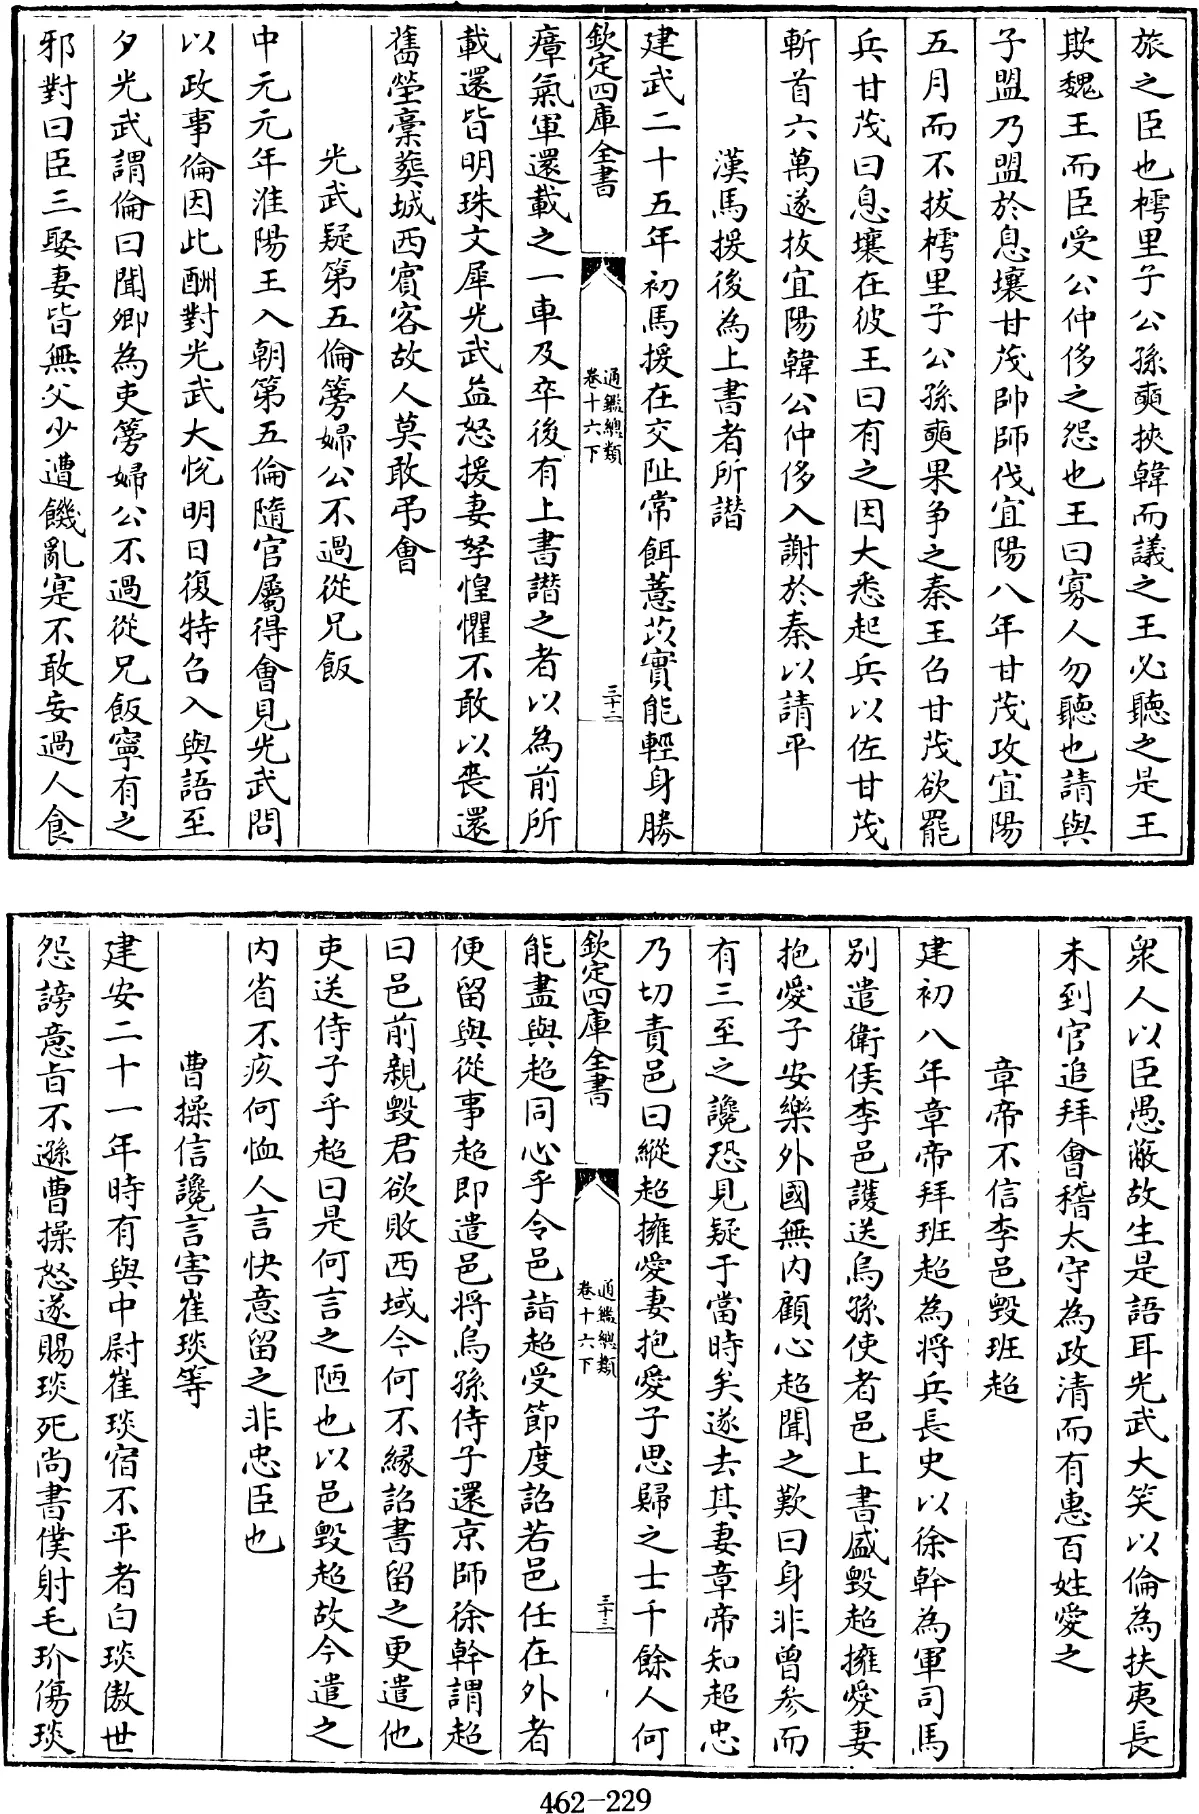 旅之臣也樗里子公孫奭挾韓而議之王必聽之是王
欺魏王而臣受公仲侈之怨也王曰寡人勿聽也請與
子盟乃盟於息壤甘茂帥師伐宜陽八年甘茂攻宜陽
五月而不拔樗里子公孫奭果争之秦王召甘茂欲罷
兵甘茂曰息壤在彼王曰有之因大悉起兵以佐甘茂
斬首六萬遂拔宜陽韓公仲侈入謝於秦以請平
漢馬援後為上書者所譖
建武二十五年初馬援在交阯常餌薏苡實能輕身勝
欽定四庫全書
通鑑總類
卷十六下
三十二
瘴氣軍還載之一車及卒後有上書譖之者以為前所
載還皆明珠文犀光武益怒援妻孥惶懼不敢以喪還
舊塋稾葬城西賓客故人莫敢弔會
光武疑第五倫篣婦公不過從兄飯
中元元年淮陽王入朝第五倫隨官屬得會見光武問
以政事倫因此酬對光武大悅明日復特召入與語至
夕光武謂倫曰聞卿為吏篣婦公不過從兄飯寧有之
邪對曰臣三娶妻皆無父少遭饑亂寔不敢妄過人食
衆人以臣愚蔽故生是語耳光武大笑以倫為扶夷長
未到官追拜會稽太守為政清而有惠百姓愛之
章帝不信李邑毀班超
建初八年章帝拜班超為將兵長史以徐幹為軍司馬
別遣衛侯李邑護送烏孫使者邑上書盛毀超擁愛妻
抱愛子安樂外國無内顧心超聞之歎曰身非曾參而
有三至之讒恐見疑于當時矣遂去其妻章帝知超忠
乃切責邑曰縱超擁愛妻抱愛子思歸之士千餘人何
欽定四庫全書
通鑑總類
卷十六下
三十三
能盡與超同心乎令邑詣超受節度詔若邑任在外者
便留與從事超即遣邑將烏孫侍子還京師徐幹謂超
曰邑前親毀君欲敗西域今何不縁詔書留之更遣他
吏送侍子乎超曰是何言之陋也以邑毀超故今遣之
内省不疚何恤人言快意留之非忠臣也
曹操信讒言害崔琰等
建安二十一年時有與中尉崔琰宿不平者白琰傲世
怨謗意旨不遜曹操怒遂賜琰死尚書僕射毛玠傷琰
462-229